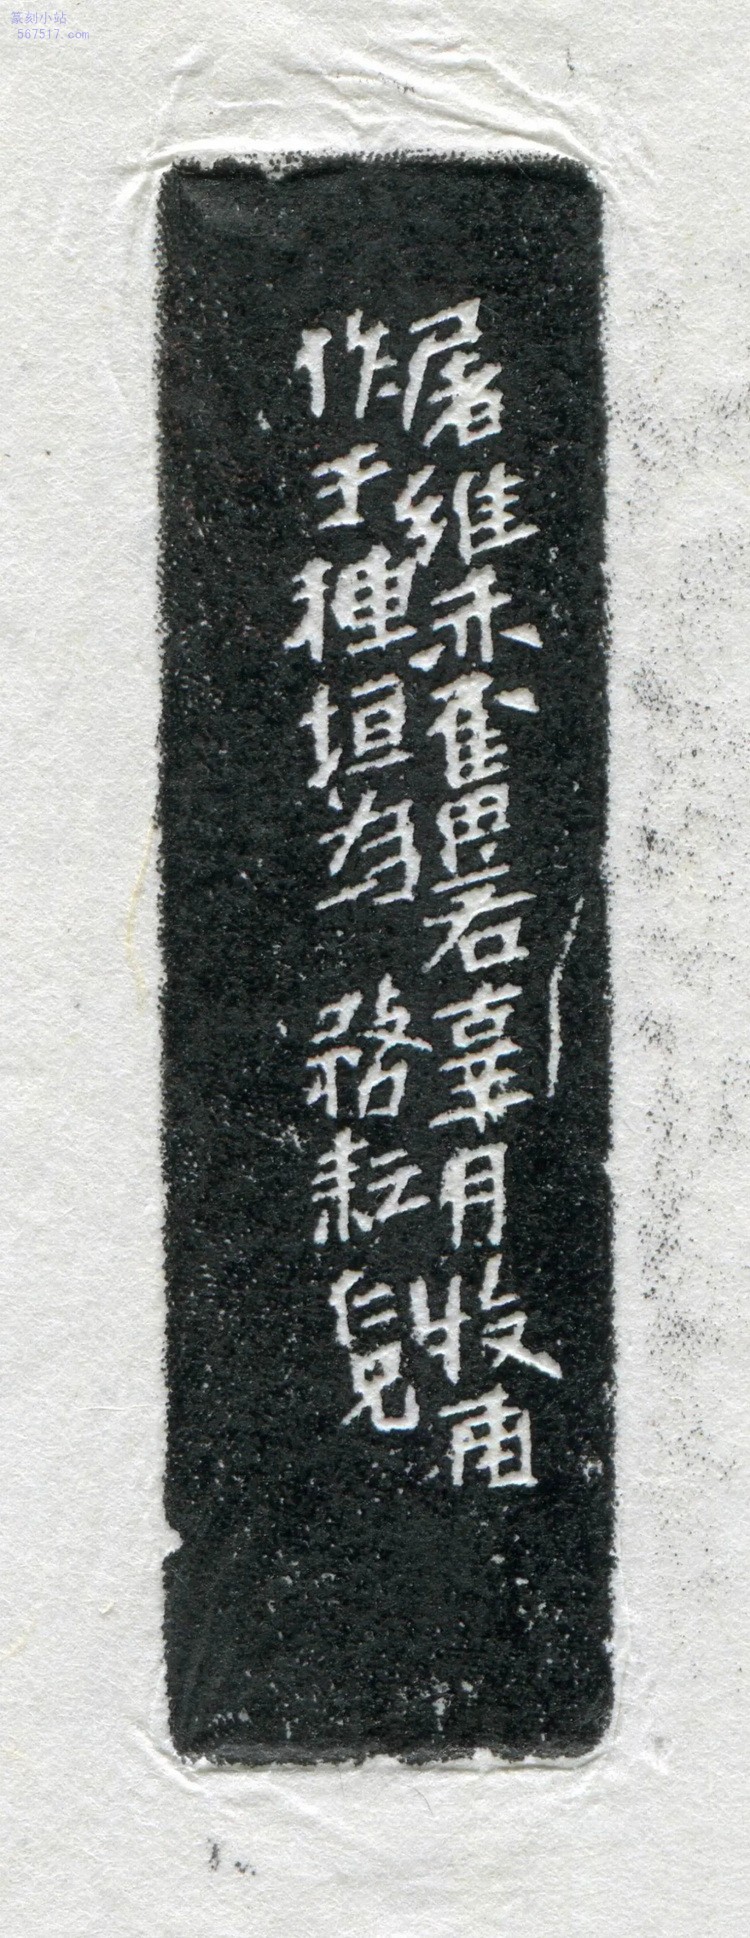 篆刻小站
567517.com
屠維赤奮若辜月牧甫
作于穗垣為 務耘仁兄